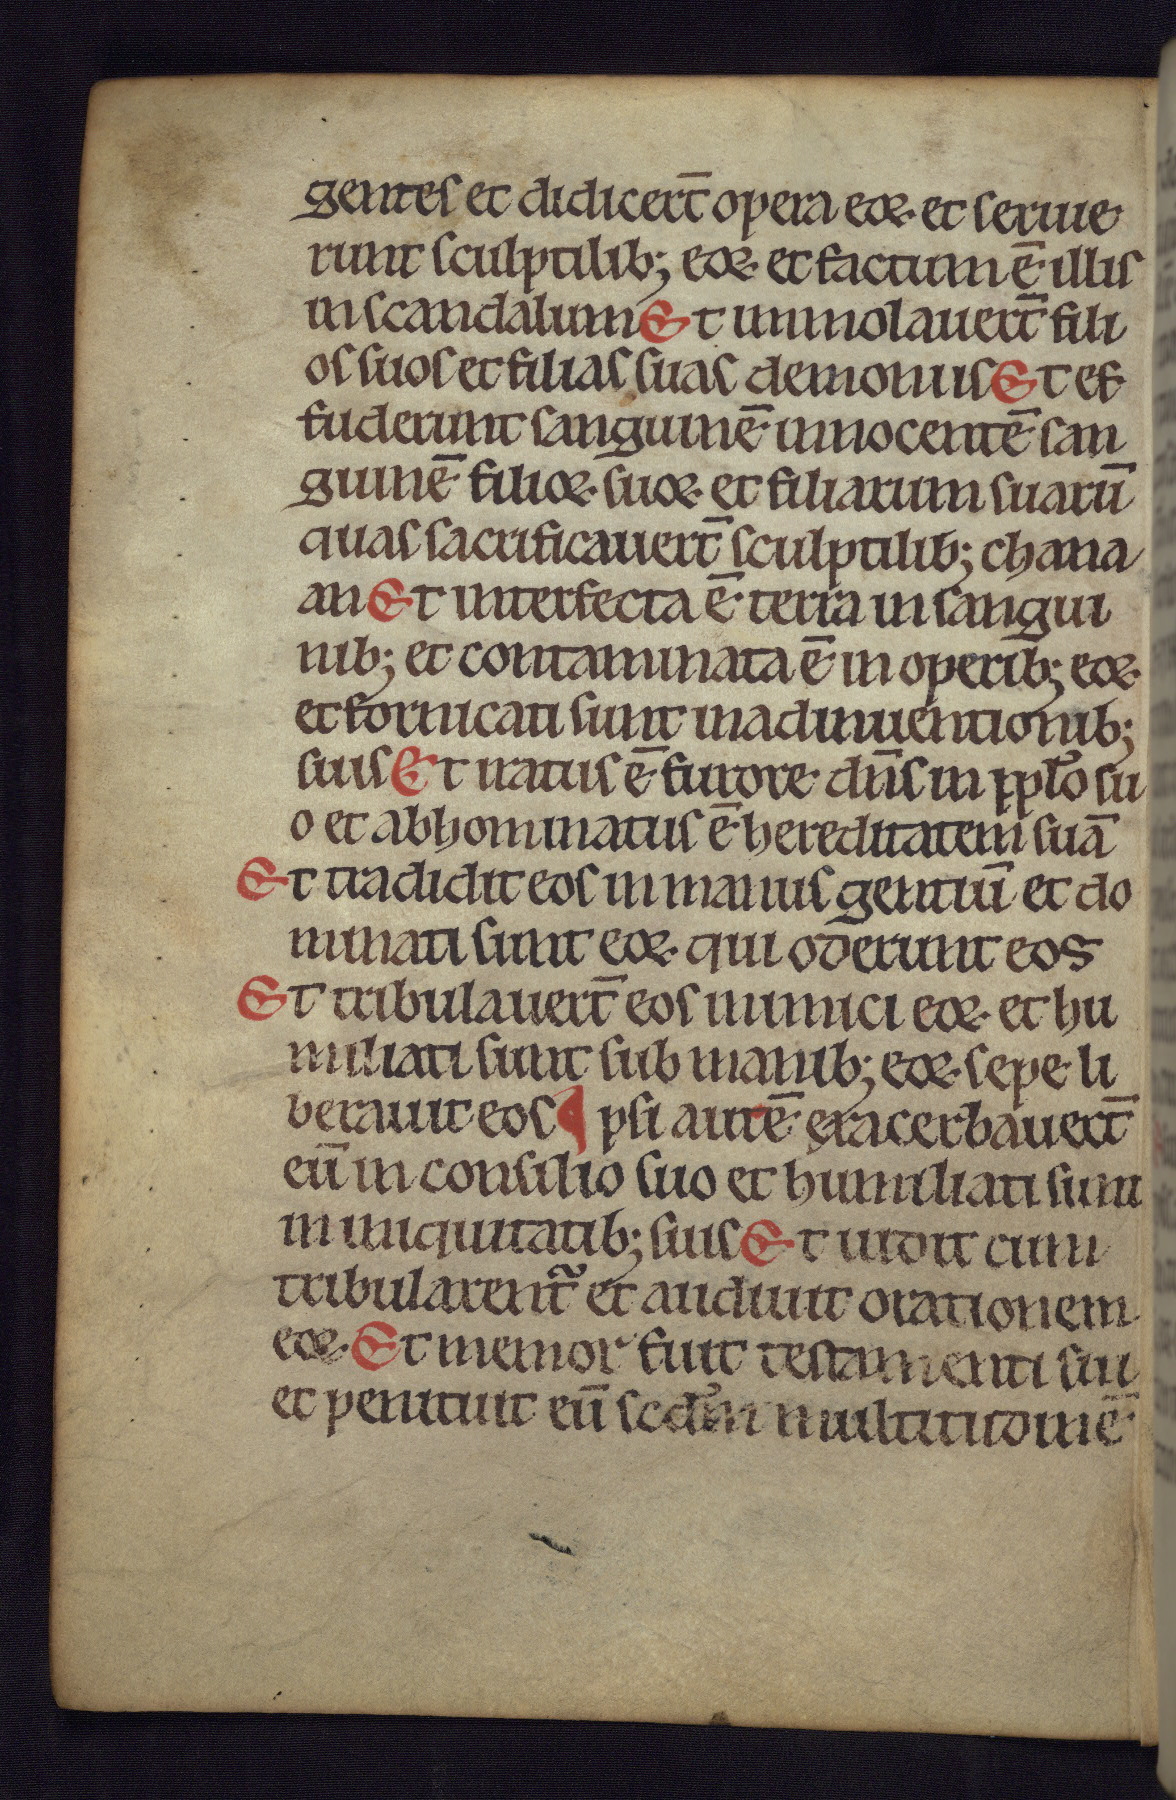 gentes et didicert̄ opera eoꝝ et seruie
runt sculptilib; eoꝝ et factum ē illis
in scandalum Et immolauert̄ fili
os suos et filias suas demoniis Et ef
fuderunt sanguinē innocentē san
guinē filioꝝ suoꝝ et filiarum suarū
quas sacrificauert̄ sculptilib; chana
an Et interfecta ē terra in sangui
nib; et contaminata ē in operib; eoꝝ
et fornicati sunt in adinuentionib;
suis Et iratus ē furore dn̄s in ppl̄o su
o et abhominatus ē hereditatem suā
Et tradidit eos in manus gentiū et do
minati sunt eoꝝ qui oderunt eos
Et tribulauert̄ eos inimici eoꝝ et hu
miliati sunt sub manib; eoꝝ sepe li
berauit eos Ipsi autē exacerbauert̄
eū in consilio suo et humiliati sunt
in iniquitatib; suis Et uidit cum
tribularent̄ et audiuit orationem
eoꝝ Et memor fuit testamenti sui
et penituit eū scdm̄ multitudinē